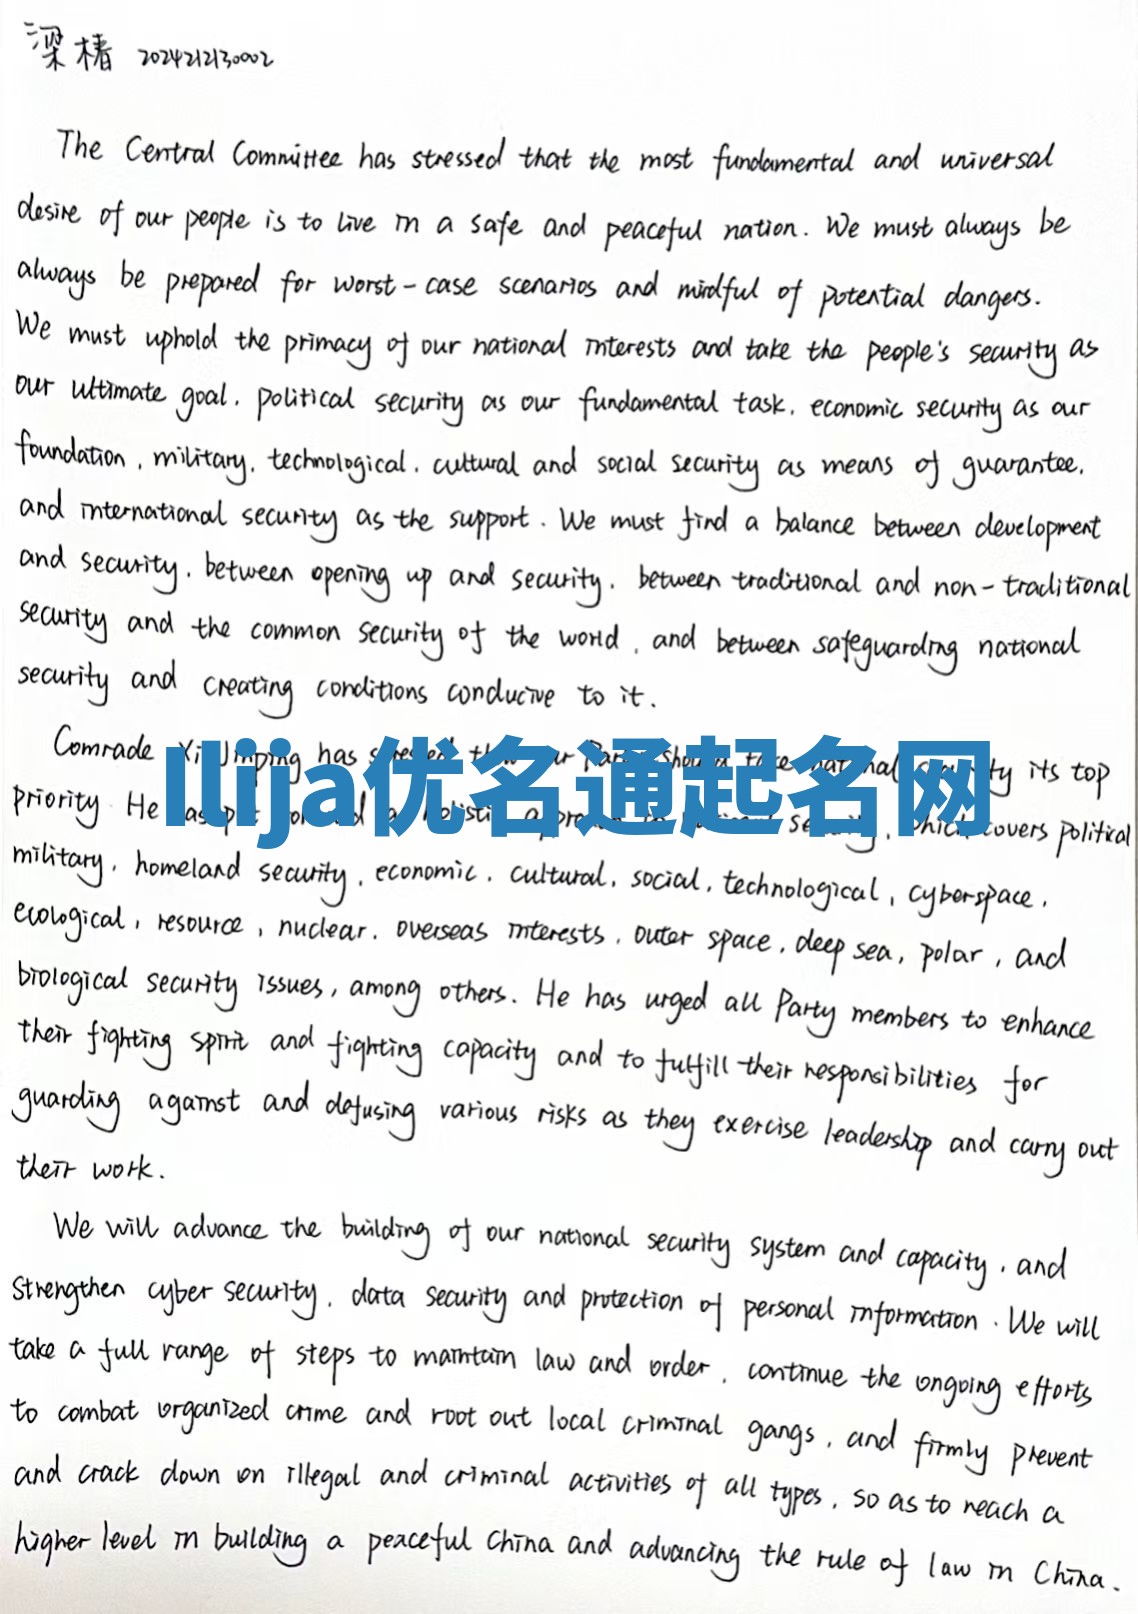 梁椿 2024212130002
The Central Committee has stressed that the most fundamental and universal
desire of our people is to live in a safe and peaceful nation. We must always be
always be prepared for worst-case scenarios and mindful of potential dangers.
We must uphold the primacy of our national interests and take the people's security as
our ultimate goal, political security as our fundamental task, economic security as our
foundation, military, technological, cultural and social security as means of guarantee,
and international security as the support. We must find a balance between development
and security, between opening up and security, between traditional and non-traditional
security and the common security of the world, and between safeguarding national
security and creating conditions conducive to it.
Comrade Xi Jinping has stressed our Party should take national security its top
Ilija优名通起名网
priority. He has put a holistic approach to national security, which covers political
military, homeland security, economic, cultural, social, technological, cyberspace,
ecological, resource, nuclear, overseas interests, outer space, deep sea, polar, and
biological security issues, among others. He has urged all Party members to enhance
their fighting spirit and fighting capacity and to fulfill their responsibilities for
guarding against and defusing various risks as they exercise leadership and carry out
their work.
We will advance the building of our national security system and capacity, and
strengthen cyber security, data security and protection of personal information. We will
take a full range of steps to maintain law and order, continue the ongoing efforts
to combat organized crime and root out local criminal gangs, and firmly prevent
and crack down on illegal and criminal activities of all types, so as to reach a
higher level in building a peaceful China and advancing the rule of law in China.